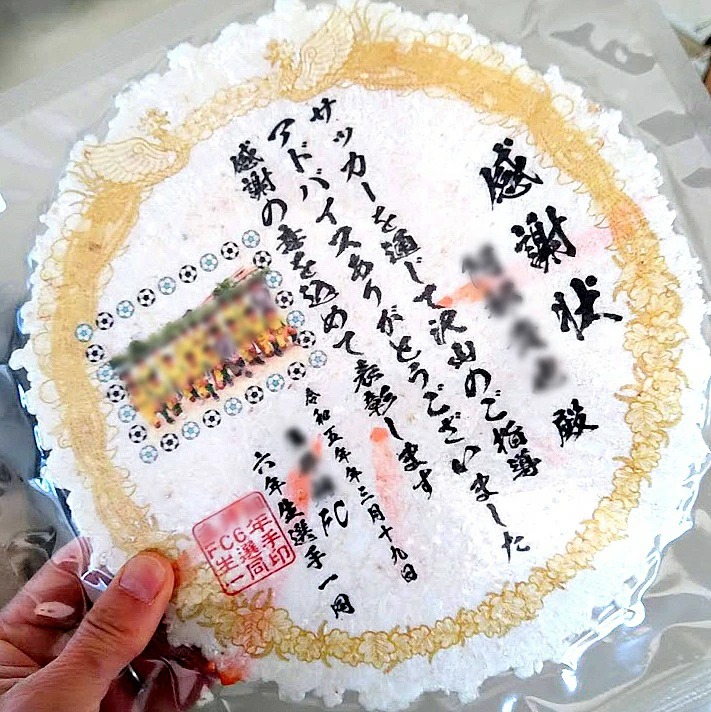 感謝状
殿
サッカーを通じて沢山のご指導
アドバイスありがとうございました
感謝の意を込めて表彰します
令和五年年三月十九日
FC
六年生選手一同
FC6年
生選手
一同印